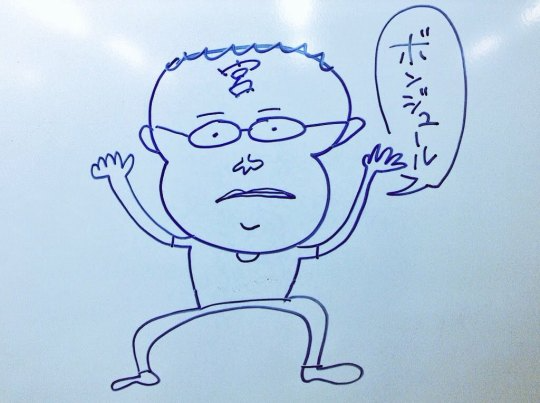 宮
ボンジュール